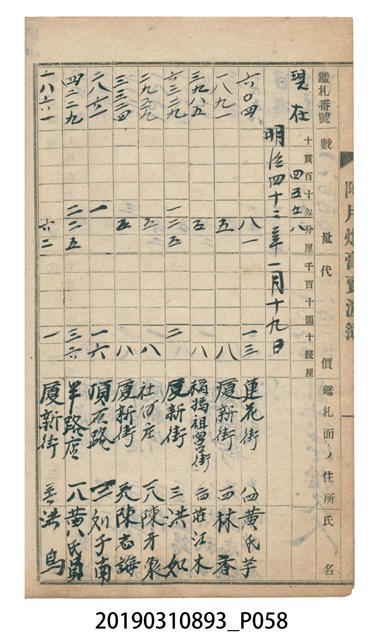 阿片煙膏賣渡簿
鑑札番號 數量 代價 鑑札面ノ住所氏名
十貫百十匁分厘 千百十圓十錢厘
現在 四五五八
明治四十三年一月十九日
六〇四 八一 一三 蓮花街 黃氏芋
一八九一 五 八 廈新街 林香
三九八五 五 八 媽祖宮街 莊江木
六三二九 一二五 二 廈新街 洪如
五 八 社口庄 陳牙象
三三三四 五 八 廈新街 陳志誨
二八六一 一 一六 頂友路 刘子南
四二二九 二二五 三六 半路店 黃氏員
一八六一 六二 一 廈新街 洪鳥
20190310893_P058